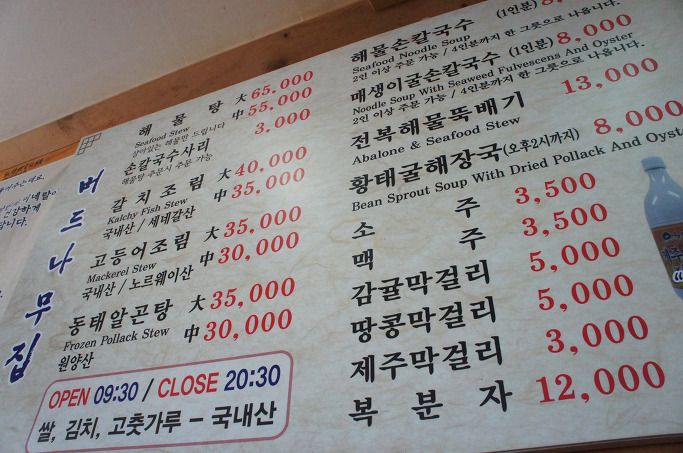 버드나무집
해물탕 大 65,000
Seafood Stew 中 55,000
살아있는 해물만 드립니다
손칼국수사리 3,000
해물탕 주문시 주문 가능
갈치조림 大 40,000
Kalchy Fish Stew 中 35,000
국내산 / 세네갈산
고등어조림 大 35,000
Mackerel Stew 中 30,000
국내산 / 노르웨이산
동태알곤탕 大 35,000
Frozen Pollack Stew 中 30,000
원양산
OPEN 09:30 / CLOSE 20:30
쌀, 김치, 고춧가루 - 국내산
해물손칼국수 (1인분)
Seafood Noodle Soup
2인 이상 주문 가능 / 4인분까지 한 그릇으로 나옵니다.
매생이굴손칼국수 (1인분) 8,000
Noodle Soup With Seaweed Fulvescens And Oyster
2인 이상 주문 가능 / 4인분까지 한 그릇으로 나옵니다.
전복해물뚝배기 13,000
Abalone & Seafood Stew
황태굴해장국 (오후2시까지) 8,000
Bean Sprout Soup With Dried Pollack And Oyste
소주 3,500
맥주 3,500
감귤막걸리 5,000
땅콩막걸리 5,000
제주막걸리 3,000
복분자 12,000